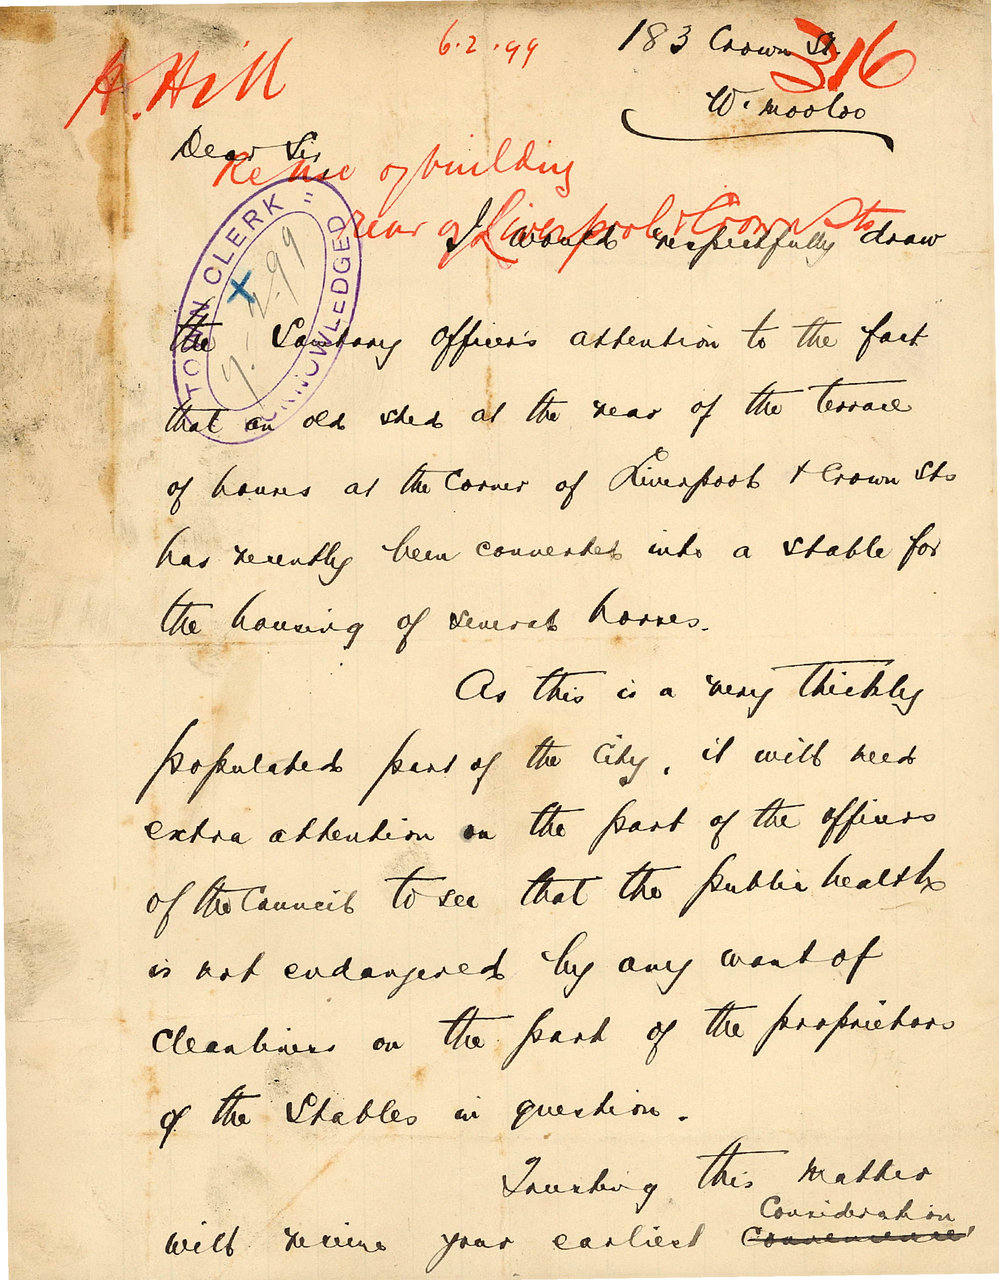 H. Hill
6.2.99
316
183 Crown St.
W. mooloo
Dear Sir
Re use of building
rear of Liverpool & Crown Sts
TOWN CLERK
ACKNOWLEDGED
7.2.99
I would respectfully draw
the Sanitary Officer's attention to the fact
that an old shed at the rear of the terrace
of houses at the Corner of Liverpool & Crown Sts
has recently been converted into a stable for
the housing of several horses.
As this is a very thickly
populated part of the City, it will need
extra attention on the part of the officers
of the Council to see that the public health
is not endangered by any want of
Cleanliness on the part of the proprietors
of the Stables in question.
Trusting this matter
Consideration
will receive your earliest Convenience